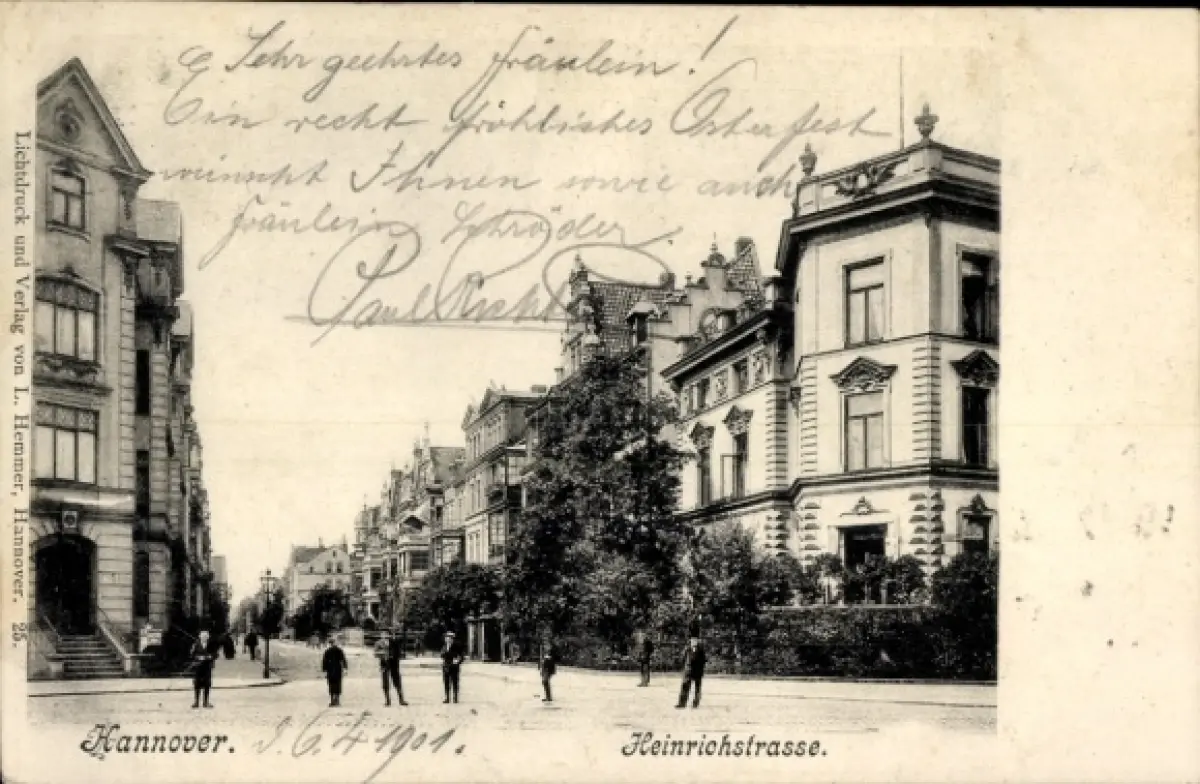 Sehr geehrtes Fräulein!
Ein recht fröhliches Osterfest
wünscht Ihnen sowie auch
Fräulein Schröder
Paul
Lichtdruck und Verlag von L. Hemmer, Hannover. 25.
Hannover. d. 6.4.1901.
Heinrichstrasse.